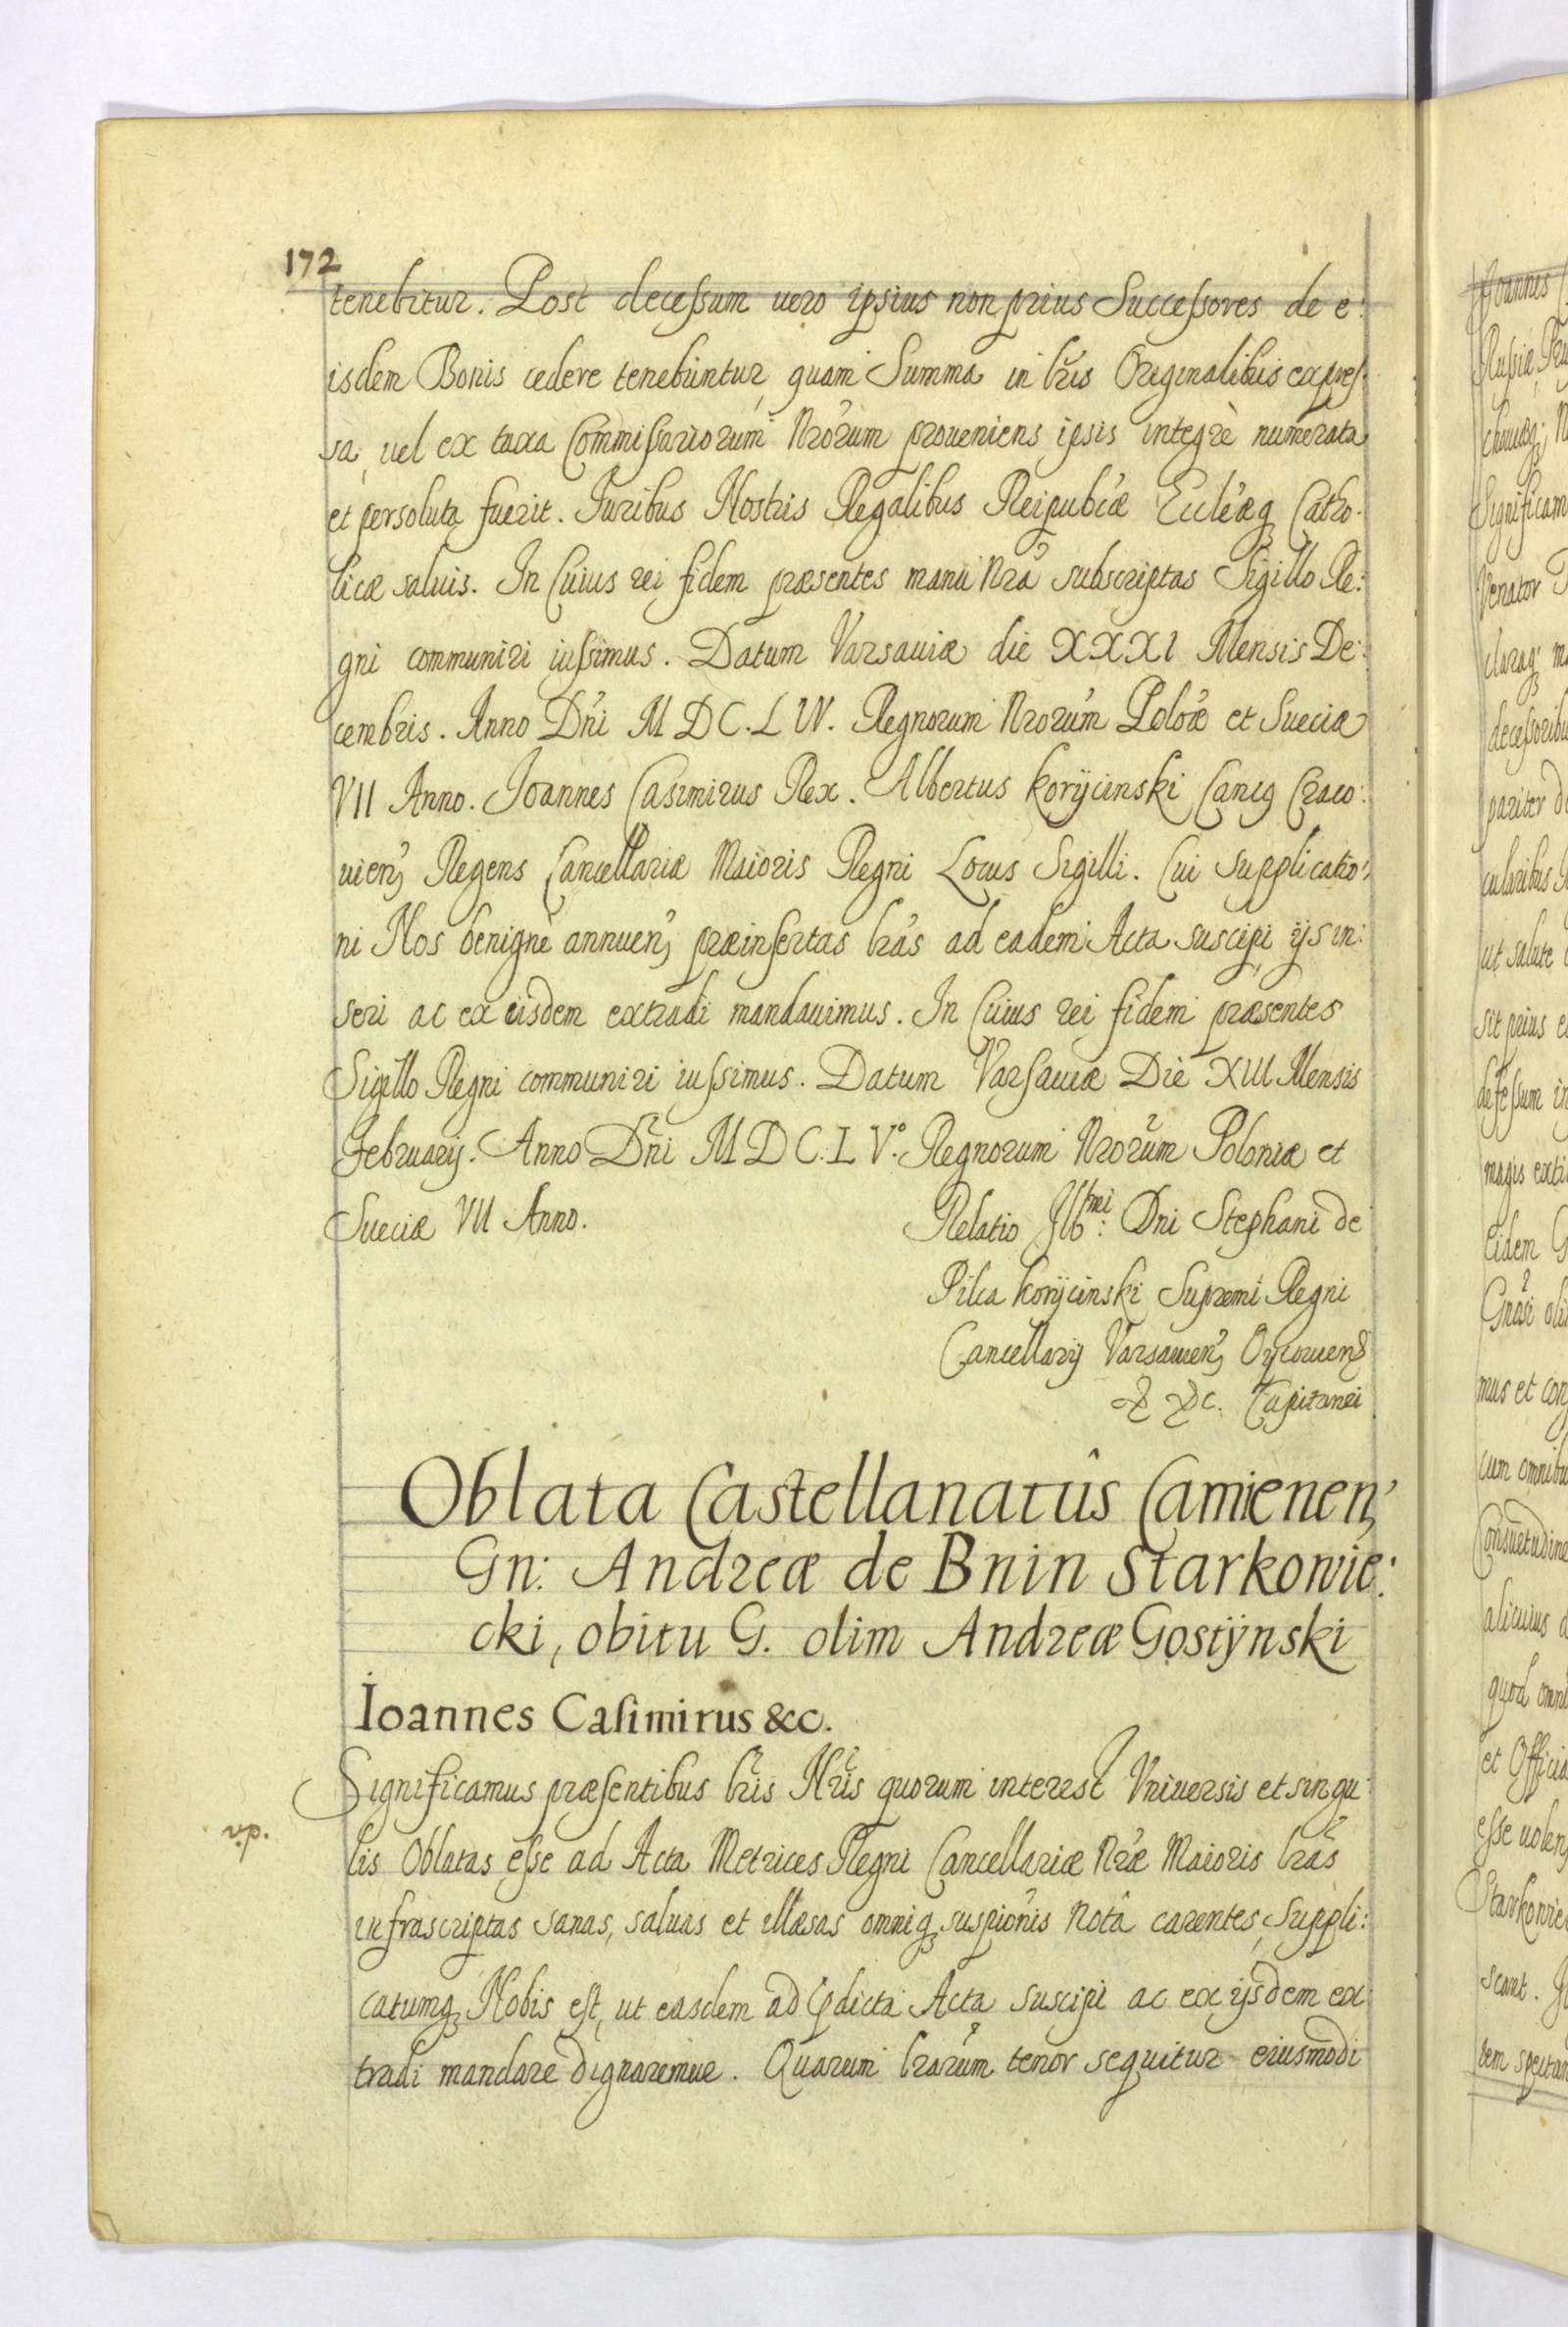 172
tenebitur. Post decessum uero ipsius non prius Successores de e:
isdem Bonis cedere tenebuntur, quam Summa in lris Originalibus expres:
sa, uel ex taxa Commissariorum Nrorum proueniens ipsis integrè numerata
et persoluta fuerit. Iuribus Nostris Regalibus Reipublcæ Eccleæq Catho:
licæ saluis. In Cuius rei fidem præsentes manu Nra subscriptas Sigillo Re:
gni communiri iussimus. Datum Varsauiæ die XXXI Mensis De:
cembris. Anno Dni M D C. L IV. Regnorum Nrorum Poloæ et Sueciæ
VII Anno. Joannes Casimirus Rex. Albertus Koryciński Cancq Craco:
uien, Regens Cancellariæ Maioris Regni Locus Sigilli. Cui Supplicatio:
ni Nos benignè annuen, præinsertas lras ad eadem Acta suscipi, ijs in:
seri ac ex eisdem extradi mandauimus. In Cuius rei fidem præsentes
Sigillo Regni communiri iussimus. Datum Varsauiæ Die XIII Mensis
Februarij. Anno Dni M D C. L V.º Regnorum Nrorum Poloniæ et
Sueciæ VII Anno.
Relatio Illmi: Dni Stephani de
Pilca Koryciński Supremi Regni
Cancellarij Varsauien, Oycouien
& &c. Capitanei
Oblata Castellanatûs Camienen,
Gn: Andreæ de Bnin Starkowie:
cki, obitu G. olim Andreæ Gostÿnski
Ioannes Casimirus &c.
Significamus præsentibus lris Nris quorum interest Vniuersis et singu:
lis Oblatas esse ad Acta Metrices Regni Cancellariæ Nræ Maioris lras
infrascriptas sanas, saluas et illæsas omniq suspionis notâ carentes, Suppli:
catumq Nobis est, ut easdem ad pdicta Acta suscipi ac ex ijsdem ex
tradi mandare dignaremur. Quarum lrarum tenor sequitur eiusmodi